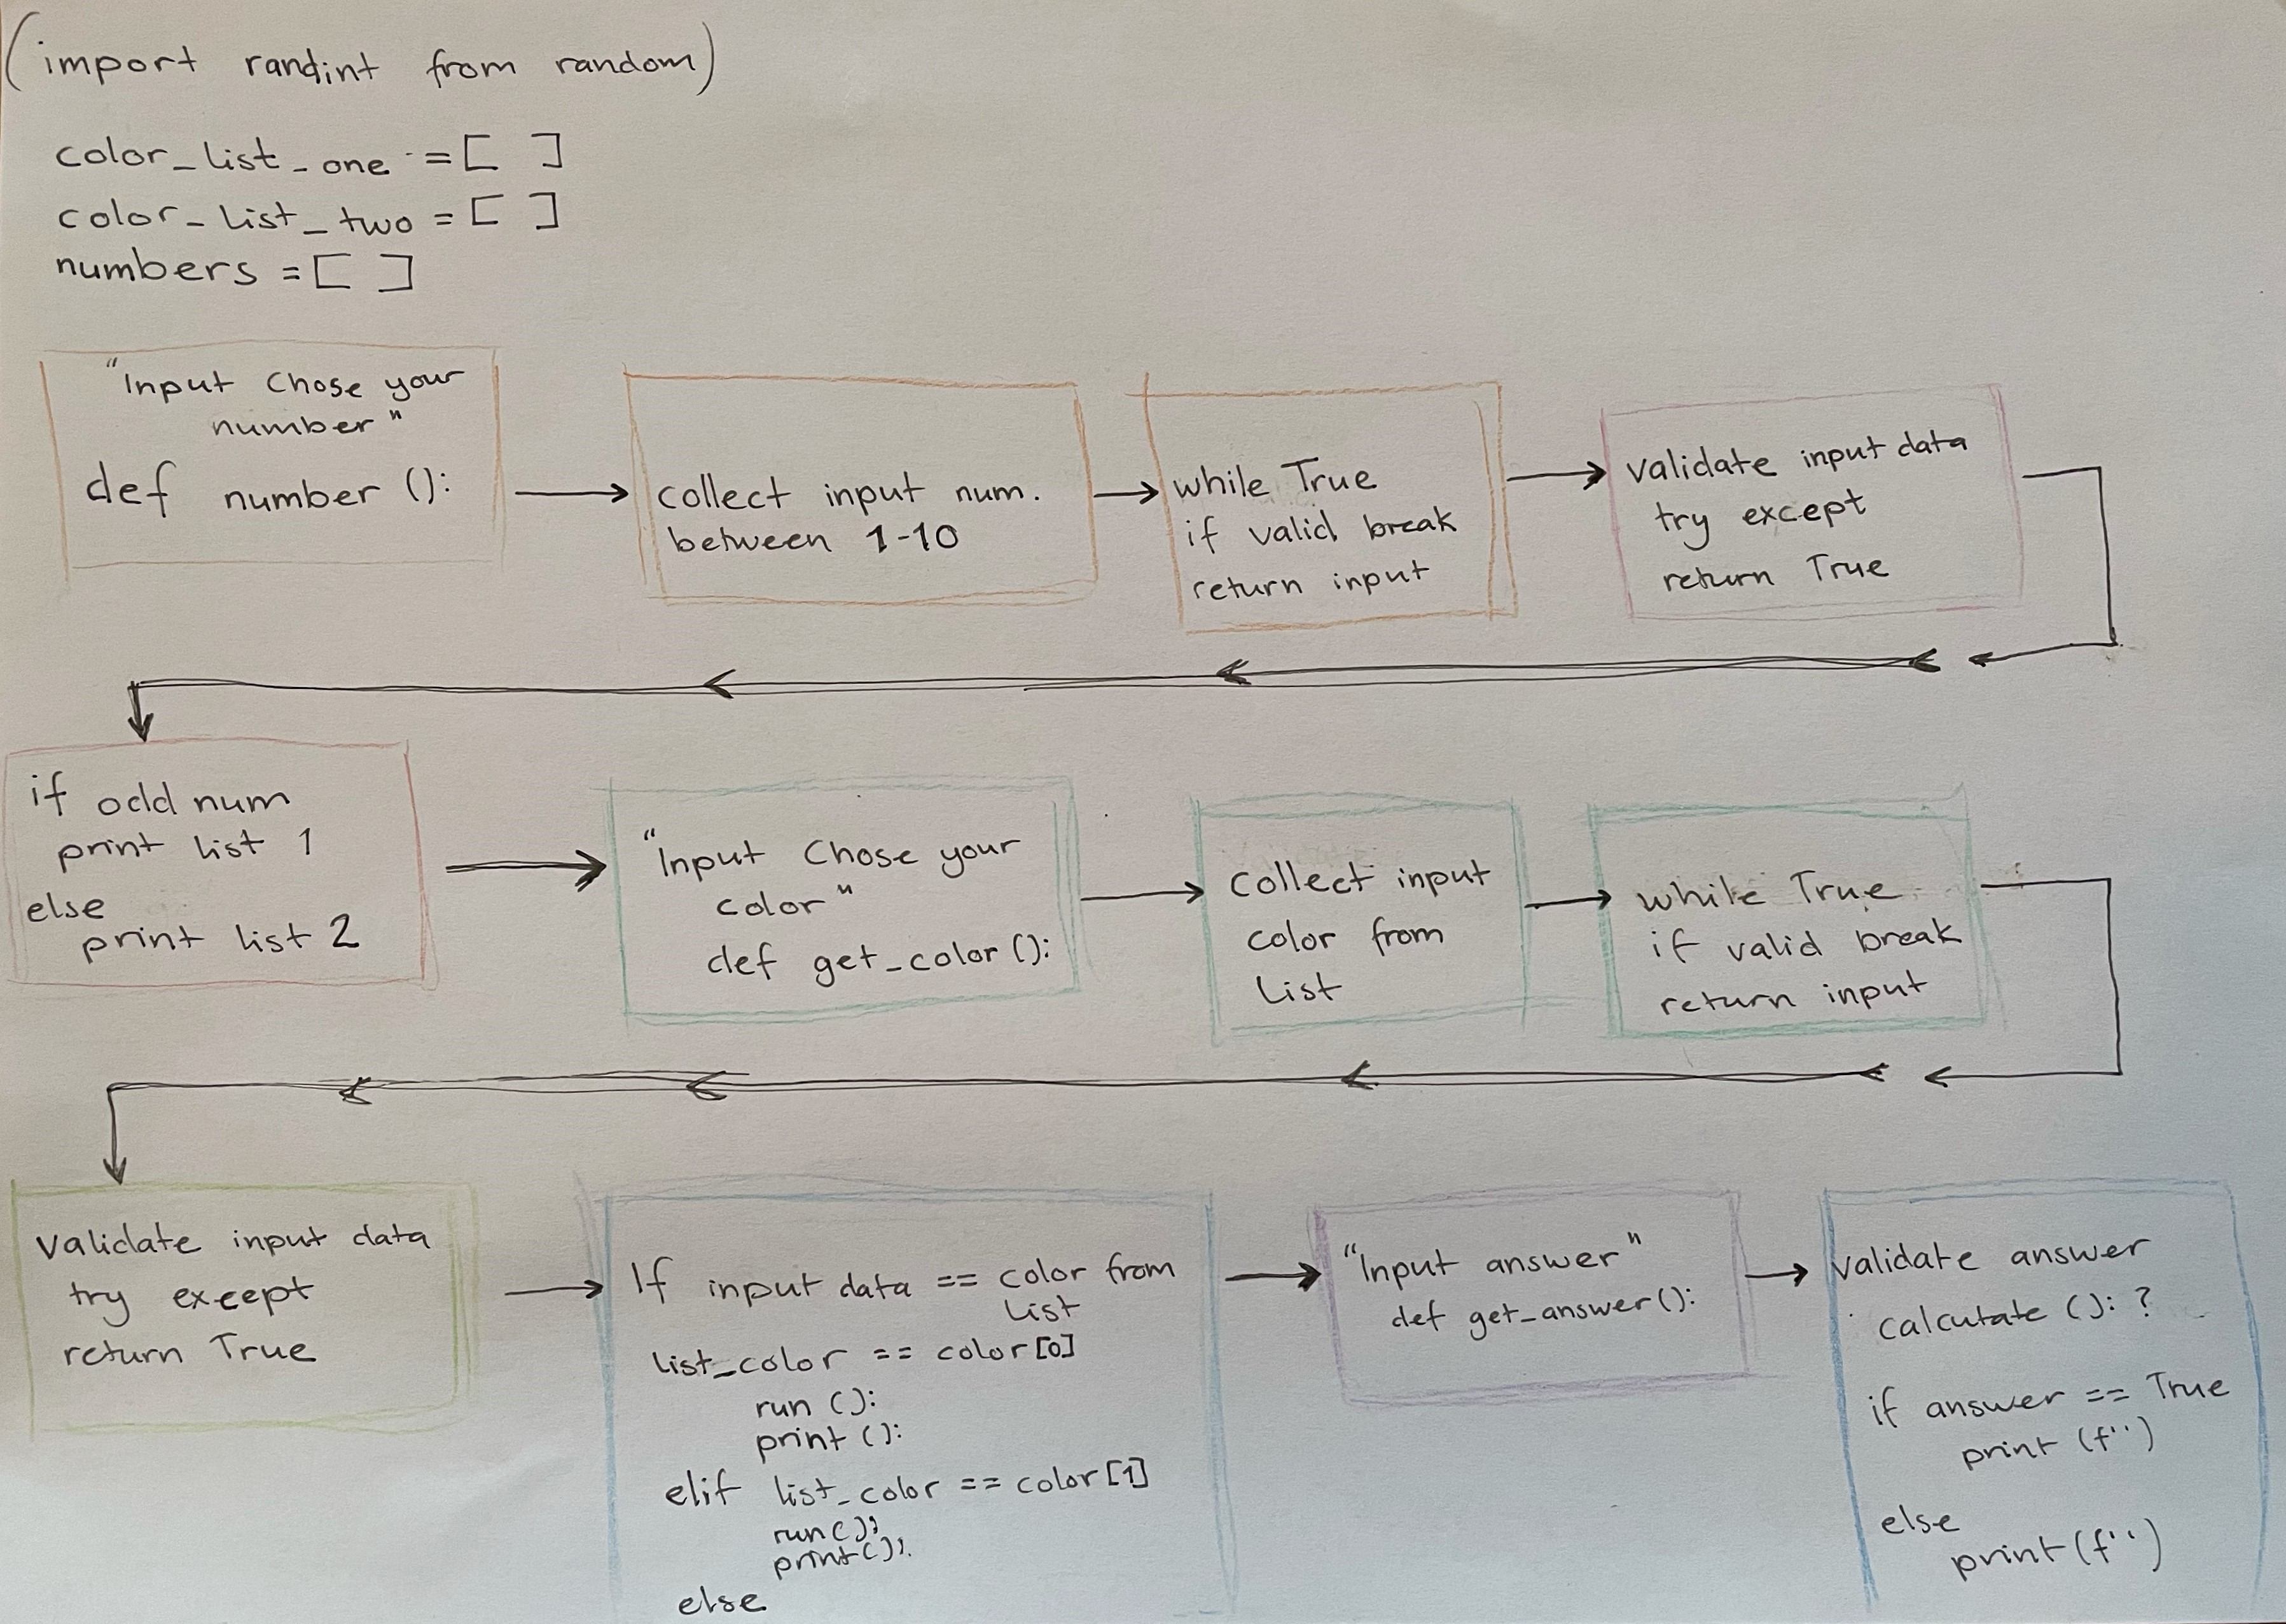 (import randint from random)
color_list_one = [ ]
color_list_two = [ ]
numbers = [ ]
"Input Chose your
number"
def number ():
collect input num.
between 1-10
while True
if valid break
return input
validate input data
try except
return True
if odd num
print list 1
else
print list 2
"Input Chose your
color"
def get_color ():
collect input
color from
list
while True
if valid break
return input
validate input data
try except
return True
If input data == color from
list
list_color == color [0]
run ():
print ():
elif list_color == color [1]
run ():
print ():
else
"Input answer"
def get_answer ():
validate answer
calcutate (): ?
if answer == True
print (f'')
else
print (f'')